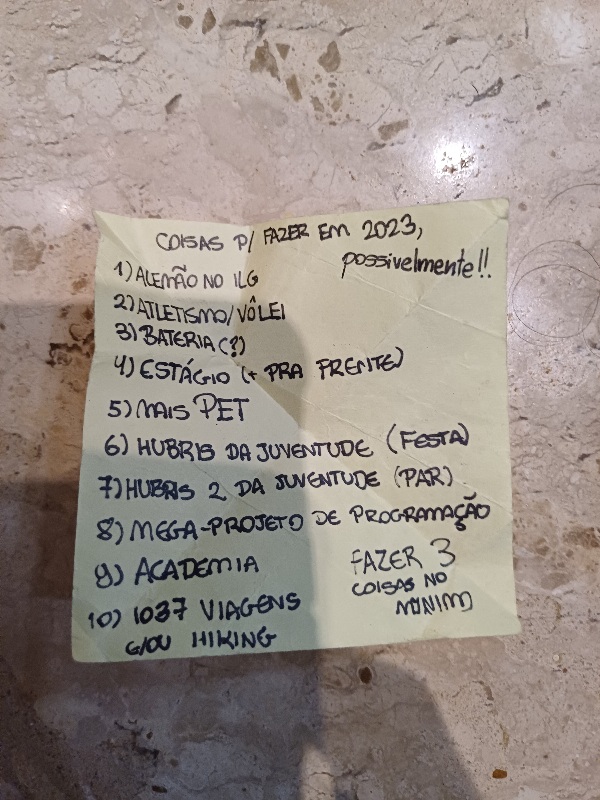 COISAS P/ FAZER EM 2023,
possivelmente!!
1) ALEMÃO NO ILG
2) ATLETISMO/VÔLEI
3) BATERIA (?)
4) ESTÁGIO (+ PRA FRENTE)
5) MAIS PET
6) HUBRIS DA JUVENTUDE (FESTA)
7) HUBRIS 2 DA JUVENTUDE (PAR)
8) MEGA-PROJETO DE PROGRAMAÇÃO
9) ACADEMIA
10) 1037 VIAGENS
E/OU HIKING
FAZER 3
COISAS NO
MÍNIMO